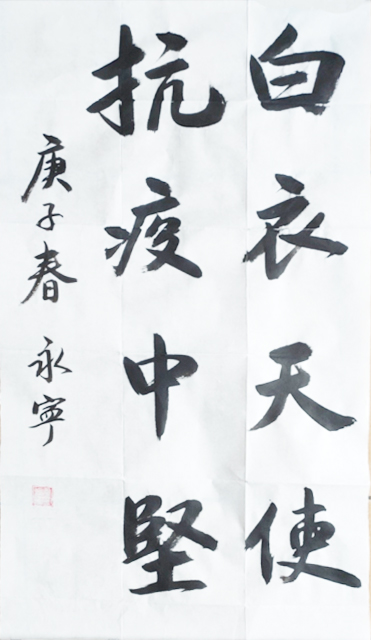 白衣天使
抗疫中堅
庚子春 永寧